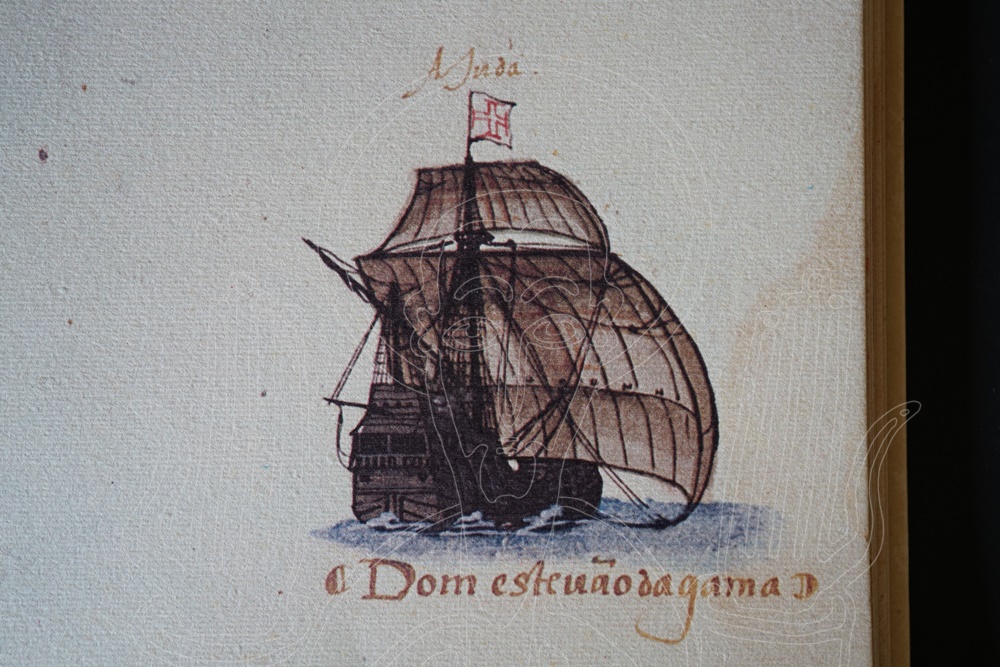 A Judà.
Dom esteuão da gama